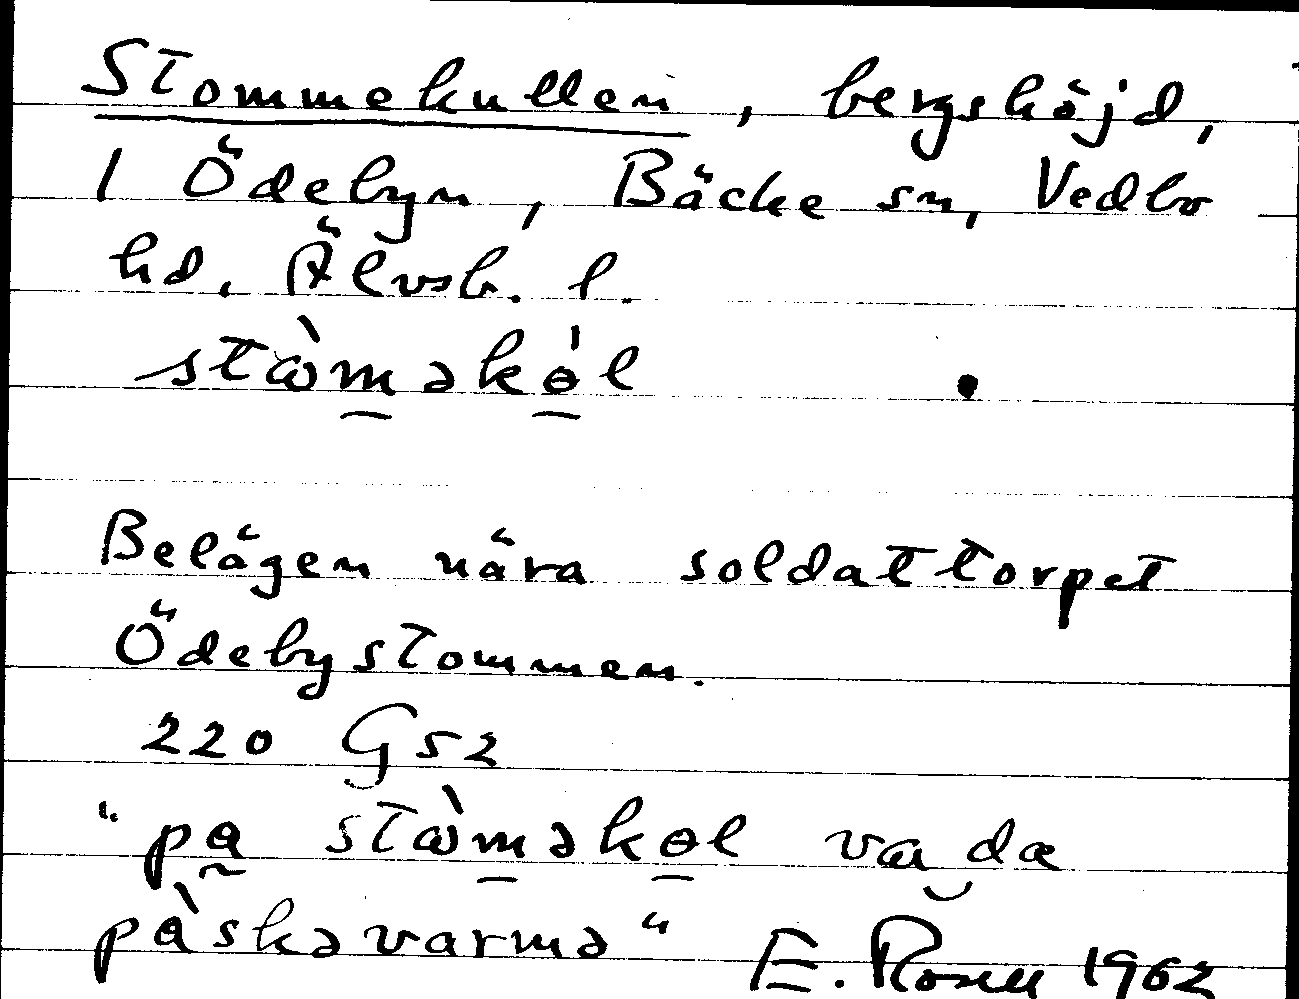 Stommekullen, bergshöjd,
1 Ödebyn, Bäcke sn, Vedbo
hd. Älvsb. l.
stɷ̀məkɵ́l
Belägen nära soldattorpet
Ödebystommen.
220 G52
"pa stɷ̀məkɵl va da
pàskəvarmə" E. Rosell 1962